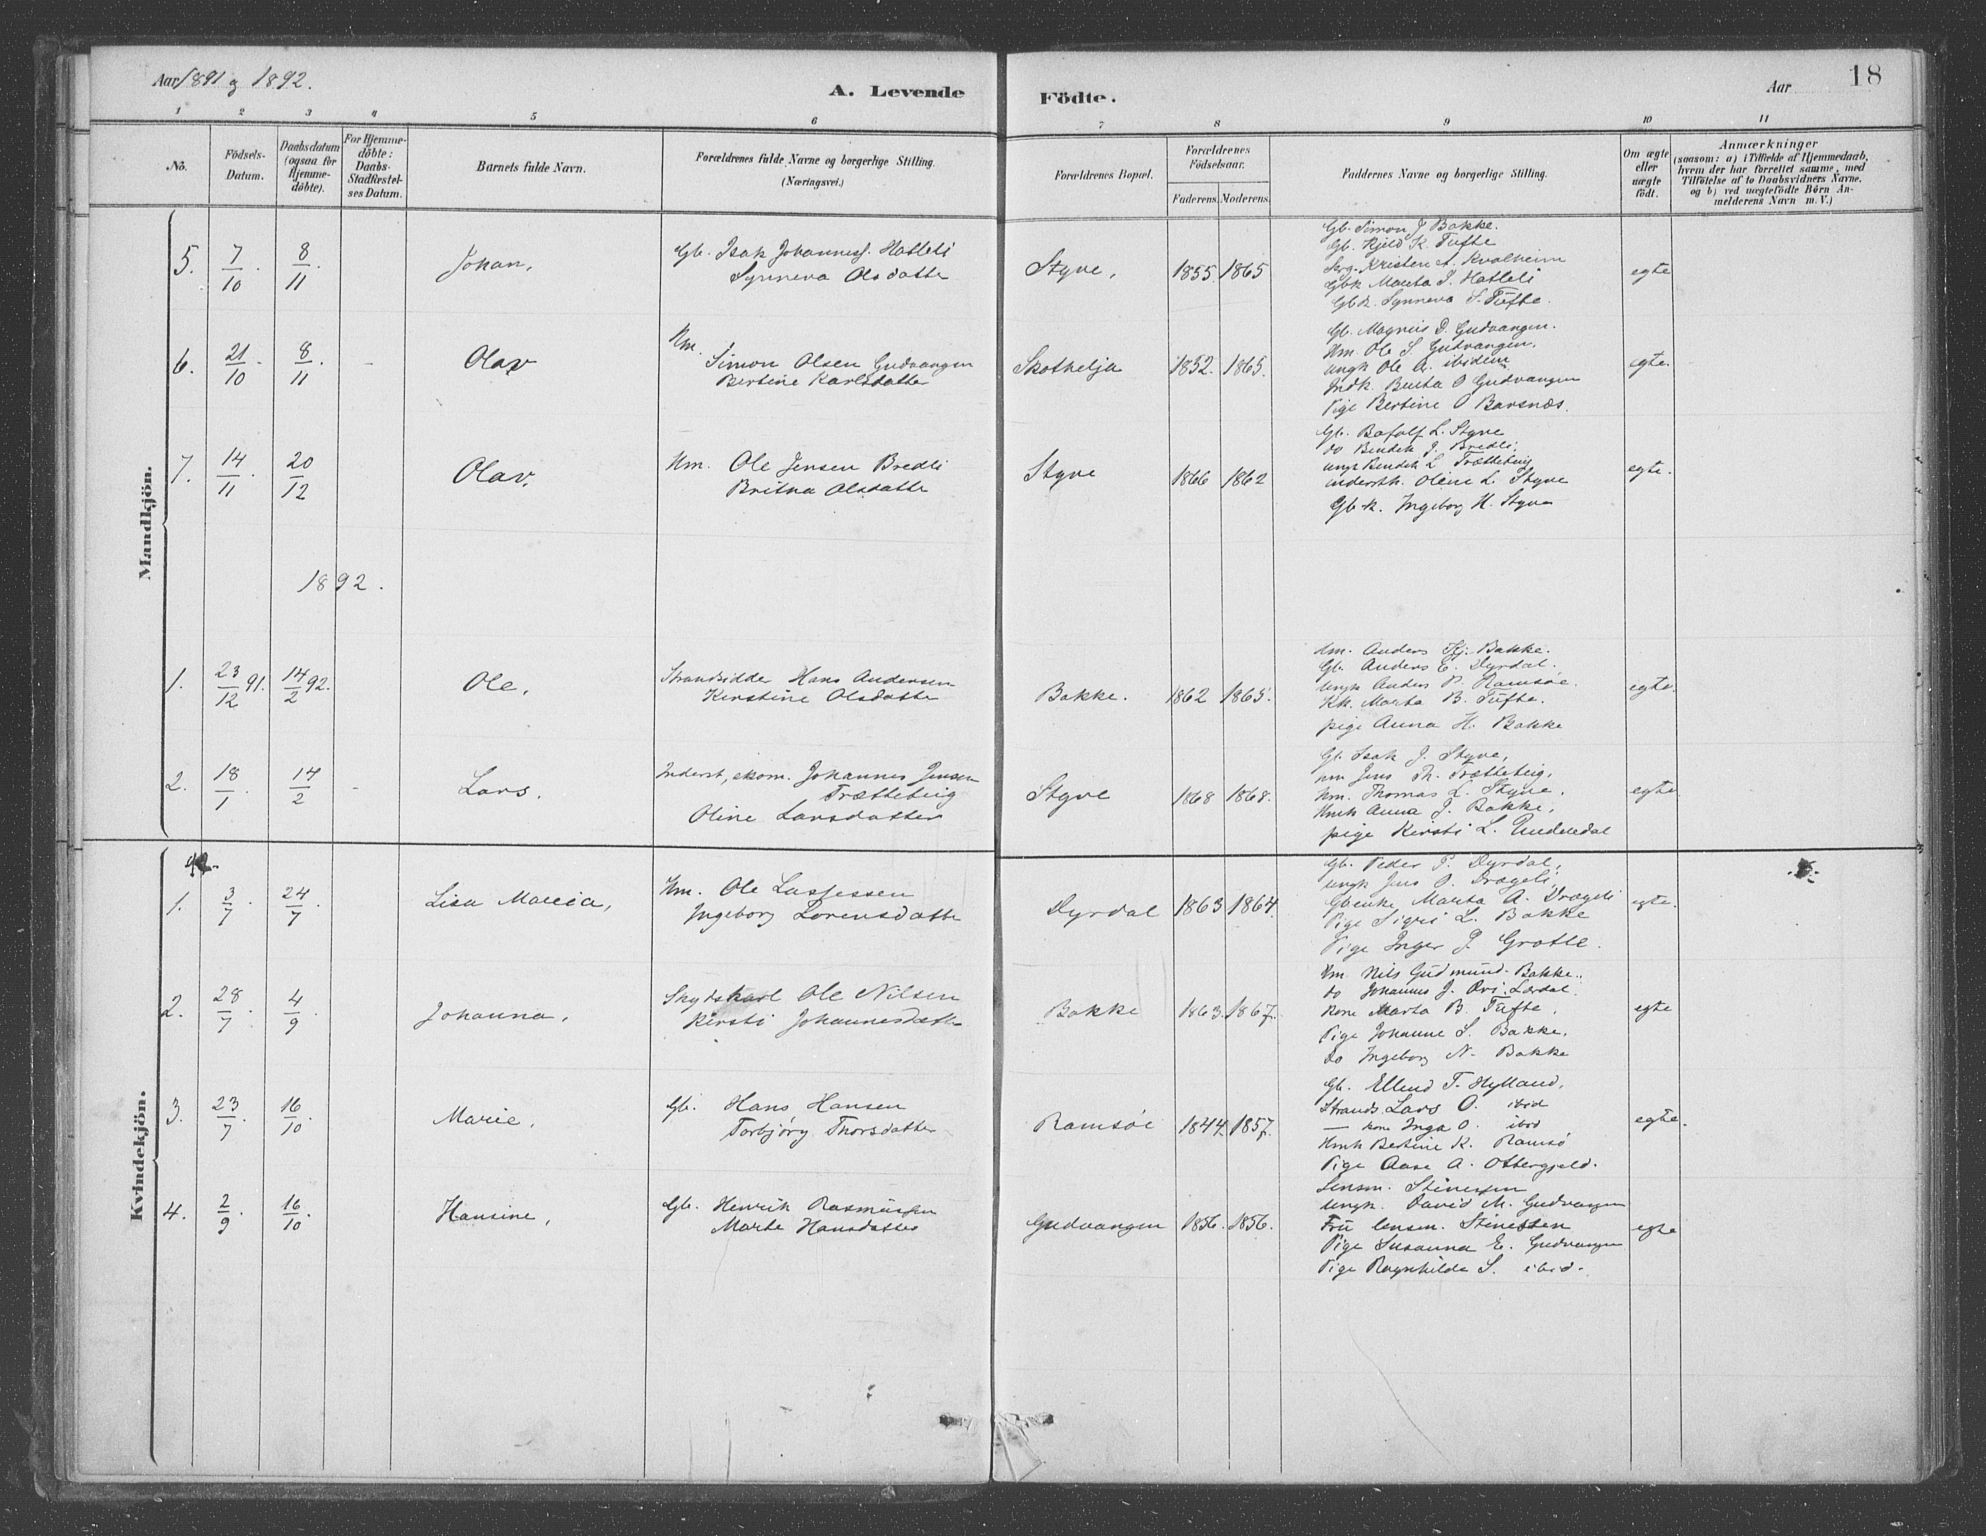 Aar 1891 og 1892.
A. Levende
Födte.
Aar
18
1 2 3 4 5 6 7 8 9 10 11
No.
Födsels-Datum.
Daabsdatum (ogsaa for Hjemme-döbte).
For Hjemme-döbte: Daabs-Stadfestel-ses Datum.
Barnets fulde Navn.
Forældrenes fulde Navne og borgerlige Stilling. (Næringsvei.)
Forældrenes Bopæl.
Forældrenes Födselsaar.
Faderens. Moderens.
Faddernes Navne og borgerlige Stilling.
Om ægte eller uægte födt.
Anmærkninger
(saasom: a) i Tilfælde af Hjemmedaab, hvem der har forrettet samme, med Tilföielse af to Daabsvidners Navne. og b) ved uægtefödte Börn An-melderens Navn m. V.)
Mandkjön.
5. 7/10. 8/11. Johan, Gb. Isak Johanness. Hatleli
Synneva Olsdatte
Styve, 1855. 1865
Gb. Simon J Bakke.
Gb. Kjeld K Tufte
Kristen A. Kvalheim
Gbk Marta S. Hatleli
Gbk. Synneva S. Tufte.
egte
6. 21/10. 8/11 - Olav
Hm. Simon Olsen Gudvangen
Bertine Karlsdatte
Skothelja 1852. 1865.
Gb. Magnus D. Gudvangen.
Hm. Ole S. Gudvangen.
ungk Ole A. ibidem
Indk. Berta O Gudvangen
Pige Bertine O Barsnæs.
egte.
7. 14/11. 20/12 Olav.
Hm. Ole Jensen Bredli
Britva Olsdatte
Styve 1866 1862
Gb. Bafolf L. Styve
do Bendek J. Bredli;
ungk Bendek L. Trætteteig
Oline L. Styve
Gbk. Ingeborg H. Styve
egte.
1892.
1. 23/12 91. 14/2 92. Ole.
Strandsidder Hans Andersen
Kerstine Olsdatte
Bakke. 1862 1865.
Hm. Anders Kj. Bakke.
Gb. Anders E. Dyrdal.
ungk Anders P. Ramsöe.
Kk. Marta B. Tufte.
pige Anna H. Bakke
egte.
2. 18/1. 14/2 - Lars.
Inderst, ekom. Johannes Jensen
Trætteteig
Oline Larsdatter
Styve 1868 1868.
Gb. Isak J. Styve,
Hm Jens Th. Trætteteig,
Hm. Thomas L. Styve.
Hmk Anna J. Bakke,
pige Kersti L. Undredal
egte.
Kvindekjön.
1. 3/7. 24/7. Lisa Maria,
Hm. Ole Lassessen
Ingeborg Lorensdatte
Dyrdal 1863 1864.
Gb. Peder P. Dyrdal,
ungk Jens O. Drægeli,
Gbenke Marta A. Drægeli
Pige Sigri L. Bakke
Pige Inger J. Grotle.
egte.
2. 28/7. 4/9. Johanna,
Skydskarl Ole Nilsen
Kersti Johannesdatte
Bakke 1863. 1867.
Hm. Nils Gudmund. Bakke.
do Johannes J. Öri. Lærdal.
Kone Marta B. Tufte,
Pige Johanne S. Bakke,
do Ingeborg N. Bakke
egte
3. 23/7. 16/10. Marie,
Gb. Hans Hansen
Torbjörg Thorsdatter
Ramsöe 1844. 1857.
Gb. Ellend T. Hylland,
Strands. Lars O. ibid
— kone Inga O. ibid
Hmk Bertine K. Ramsö
Pige Aase A. Ottergjeld.
egte.
4. 2/9. 16/10. Hansine,
Gb. Henrik Rasmussen
Marte Hansdatter
Gudvangen 1856. 1856.
Lensm. Stinessen
ungk. David M. Gudvangen
Fru lensm. Stinessen
Pige Susanna E. Gudvangen
Pige Ragnhilda S. ibid.
egte